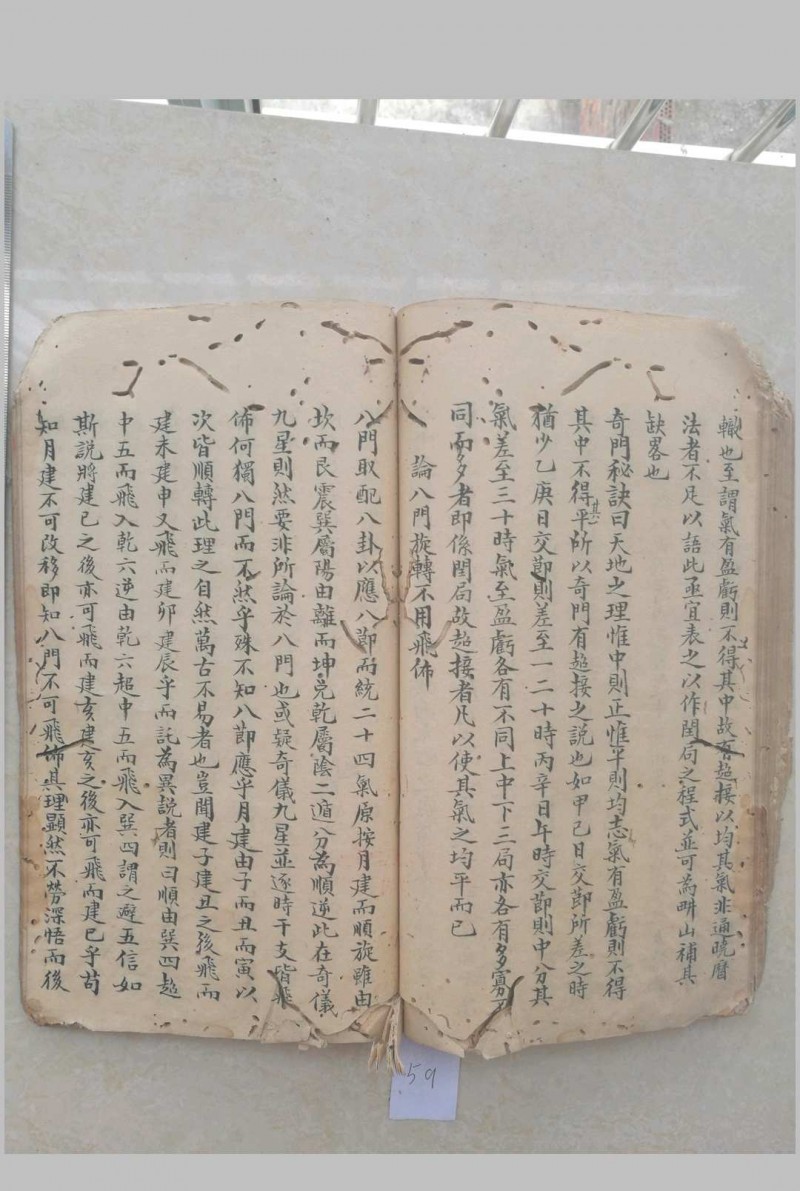 轍也至謂氣有盈虧則不得其中故有超接以均其氣非通曉曆
法者不足以語此亟宜表之以作閏局之程式並可為畊山補其
缺畧也
奇門秘訣曰天地之理惟中則正惟平則均志氣有盈虧則不得
其中不得其平所以奇門有超接之說也如甲己日交節所差之時
猶少乙庚日交節則差至一二十時丙辛日午時交節則中分其
氣差至三十時氣至盈虧各有不同上中下三局亦各有多寡不
同而多者即係閏局故超接者凡以使其氣之均平而已
論八門旋轉不用飛佈
八門取配八卦以應八節而統二十四氣原按月建而順旋雖由
坎而艮震巽屬陽由離而坤兌乾屬陰二遁分為順逆此在奇儀
九星則然要非所論於八門也或疑奇儀九星並逐時干支皆飛
佈何獨八門而不然乎殊不知八節應乎月建由子而丑而寅以
次皆順轉此理之自然萬古不易者也豈聞建子建丑之後飛而
建未建申又飛而建卯建辰乎而託為異說者則曰順由巽四超
中五而飛入乾六逆由乾六超中五而飛入巽四謂之避五信如
斯說將建巳之後亦可飛而建亥建亥之後亦可飛而建巳乎苟
知月建不可改移即知八門不可飛佈其理顯然不勞深悟而後
59